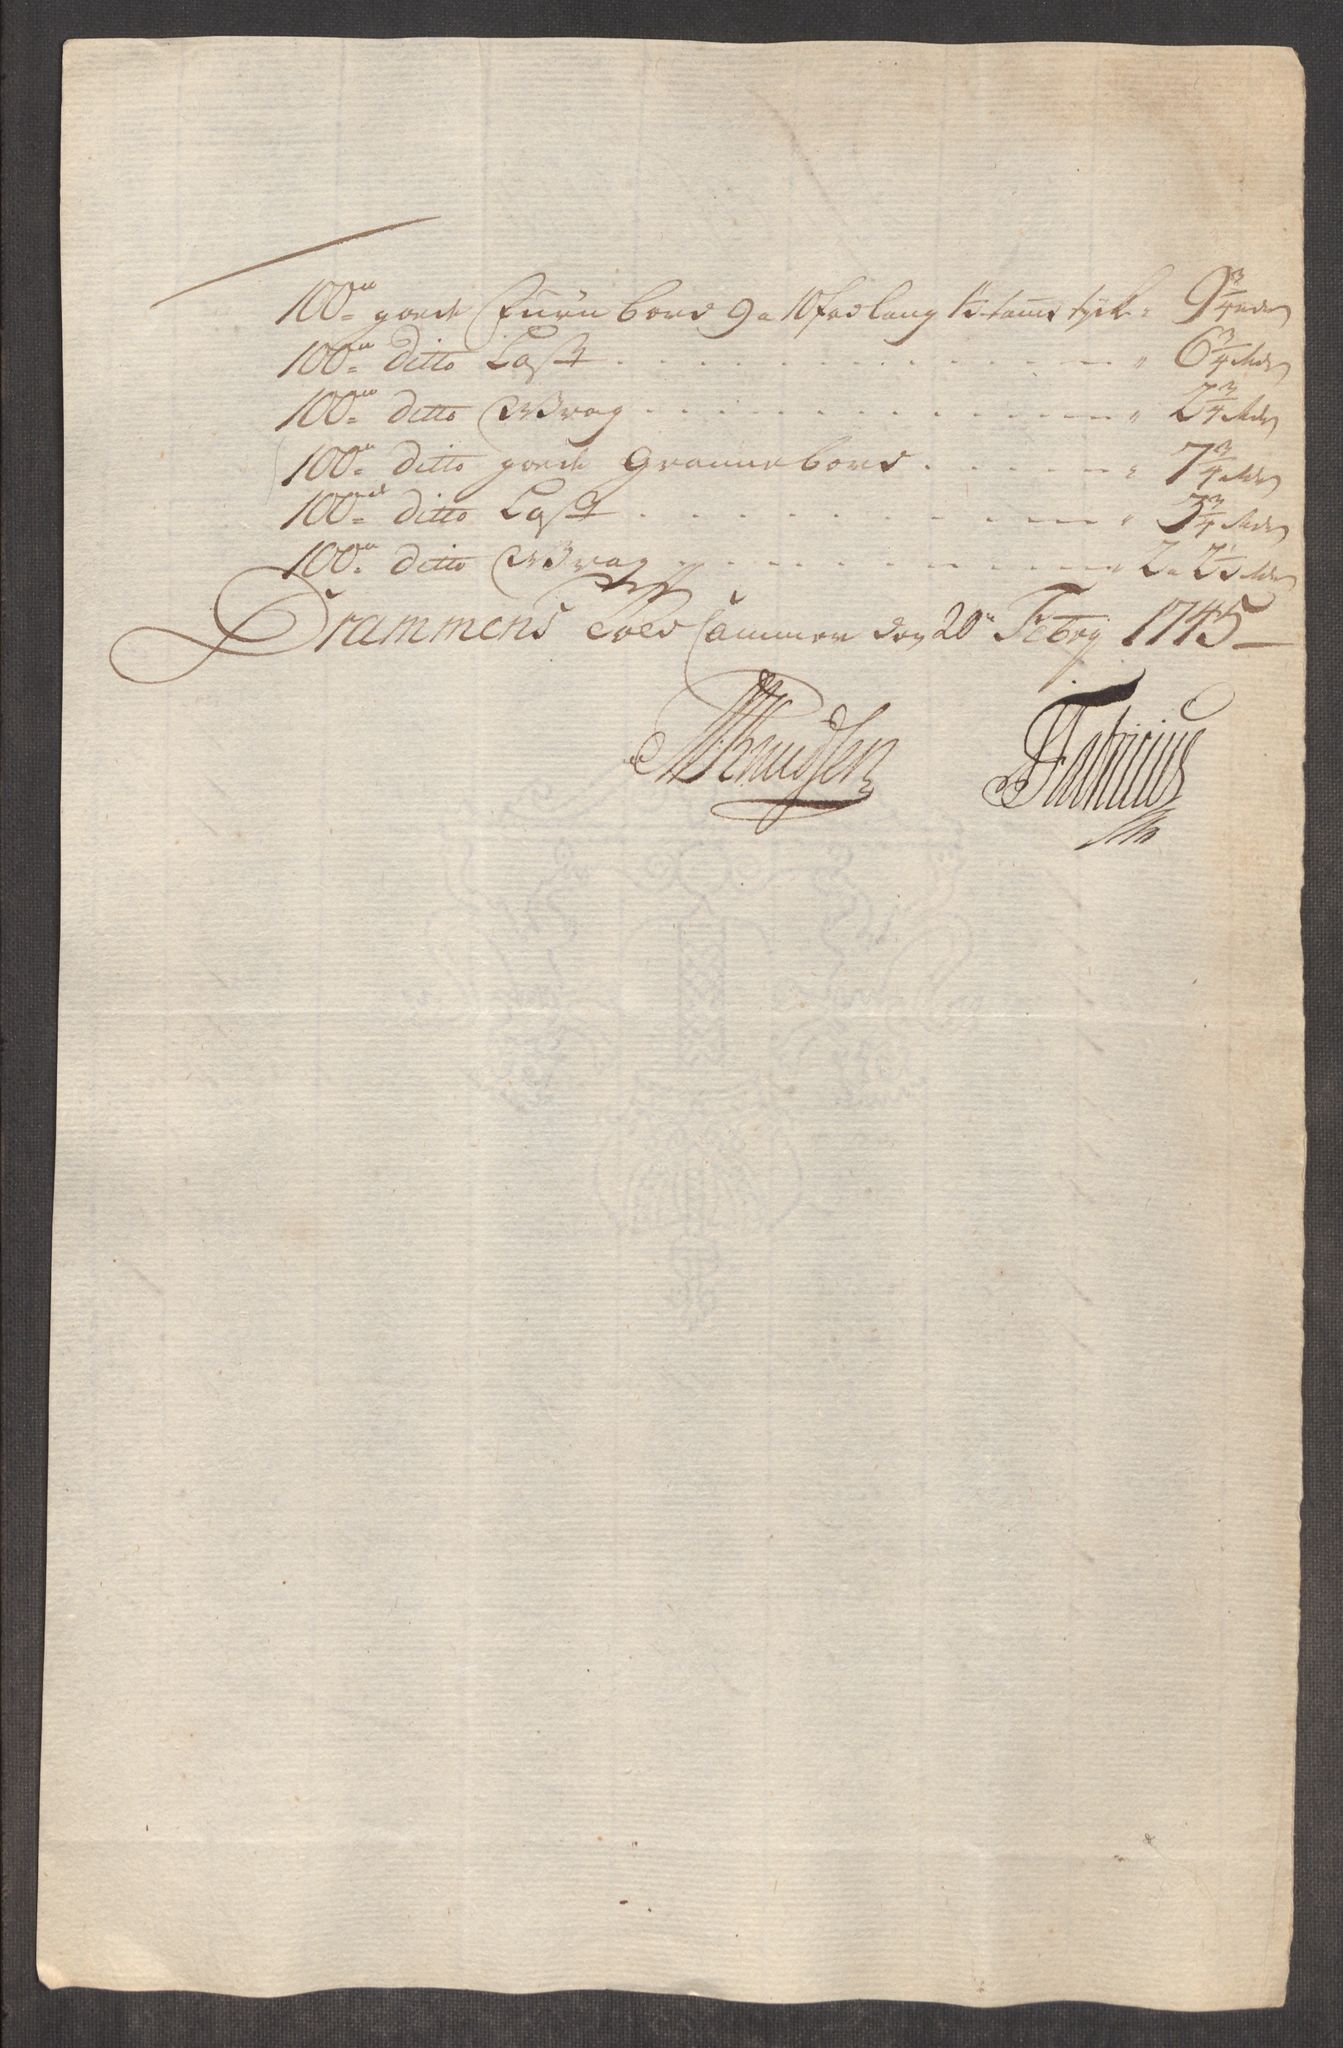 100de goede Furu bord 9 a 10 fod lang 1½ tome tyck " 9¾ Rdr
100de ditto Last . . . . . . . . " 6¾ Rdr
100de ditto Wrag . . . . . . . . " 2¾ Rdr
100de ditto goede Grannebord . . . . . " 7¾ Rdr
100de ditto Last . . . . . . . . " 3¾ Rdr
100de ditto Wrag . . . . . . . . 2 a 2½ Rdr
Drammens Told Cammer den 20de Febry 1745
Knudsen Fabricius